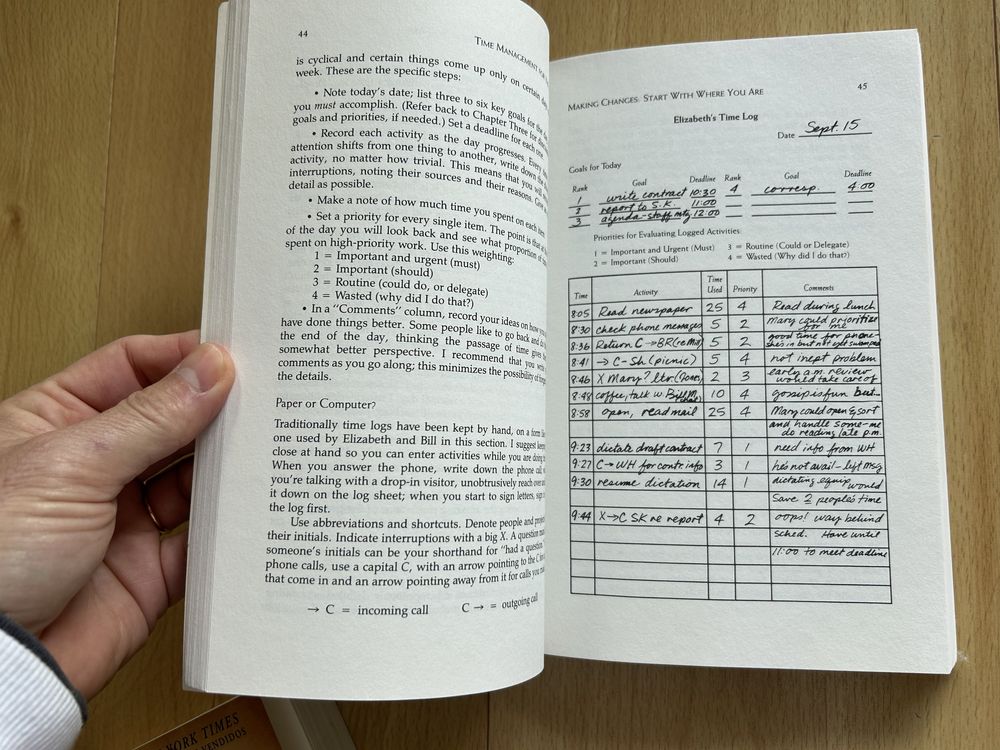 44
TIME MANAGEMENT FOR
is cyclical and certain things come up only on certain days
week. These are the specific steps:
• Note today's date; list three to six key goals for the day
you must accomplish. (Refer back to Chapter Three for
goals and priorities, if needed.) Set a deadline for each one.
• Record each activity as the day progresses. Every
attention shifts from one thing to another, write down the
activity, no matter how trivial. This means that you will
interruptions, noting their sources and their reasons. Give
detail as possible.
• Make a note of how much time you spent on each item
• Set a priority for every single item. The point is that at
of the day you will look back and see what proportion of
spent on high-priority work. Use this weighting:
1 = Important and urgent (must)
2 = Important (should)
3 = Routine (could do, or delegate)
4 = Wasted (why did I do that?)
• In a "Comments" column, record your ideas on how you
have done things better. Some people like to go back and do
the end of the day, thinking the passage of time gives
somewhat better perspective. I recommend that you write
comments as you go along; this minimizes the possibility of
the details.
Paper or Computer?
Traditionally time logs have been kept by hand, on a form
one used by Elizabeth and Bill in this section. I suggest
close at hand so you can enter activities while you are doing
When you answer the phone, write down the phone call
you're talking with a drop-in visitor, unobtrusively reach over
it down on the log sheet; when you start to sign letters,
the log first.
Use abbreviations and shortcuts. Denote people and
their initials. Indicate interruptions with a big X. A question
someone's initials can be your shorthand for "had a question."
phone calls, use a capital C, with an arrow pointing to the C
that come in and an arrow pointing away from it for calls you
→ C = incoming call C → = outgoing call
MAKING CHANGES: START WITH WHERE YOU ARE 45
Elizabeth's Time Log
Date Sept. 15
Goals for Today
Rank Goal Deadline Rank Goal Deadline
1 write contract 10:30 4 corresp. 4:00
2 report to S.K. 11:00
3 agenda-staff mtg 12:00
Priorities for Evaluating Logged Activities:
1 = Important and Urgent (Must) 3 = Routine (Could or Delegate)
2 = Important (Should) 4 = Wasted (Why did I do that?)
Time Activity Time Used Priority Comments
8:05 Read newspaper 25 4 Read during lunch
8:30 check phone messages 5 2 Mary could prioritize for me
8:36 Return C → BR (re Mtg) 5 2 good time for phone-
8:41 → C - Sh (picnic) 5 4 not inept problem
8:46 X Mary? ltr (Jones) 2 3 early a.m. review would take care of
8:48 coffee, talk w Bill M. 10 4 gossip is fun but...
8:58 open, read mail 25 4 Mary could open & sort
and handle some-me
do reading late p.m.
9:23 dictate draft contract 7 1 need info from WH
9:27 C → WH for contr. info 3 1 he's not avail - left msg
9:30 resume dictation 14 1 dictating equip would
save 2 people's time
9:44 X → C SK re report 4 2 oops! way behind
sched. Have until
11:00 to meet deadline
YORK TIMES
VENDIDOS